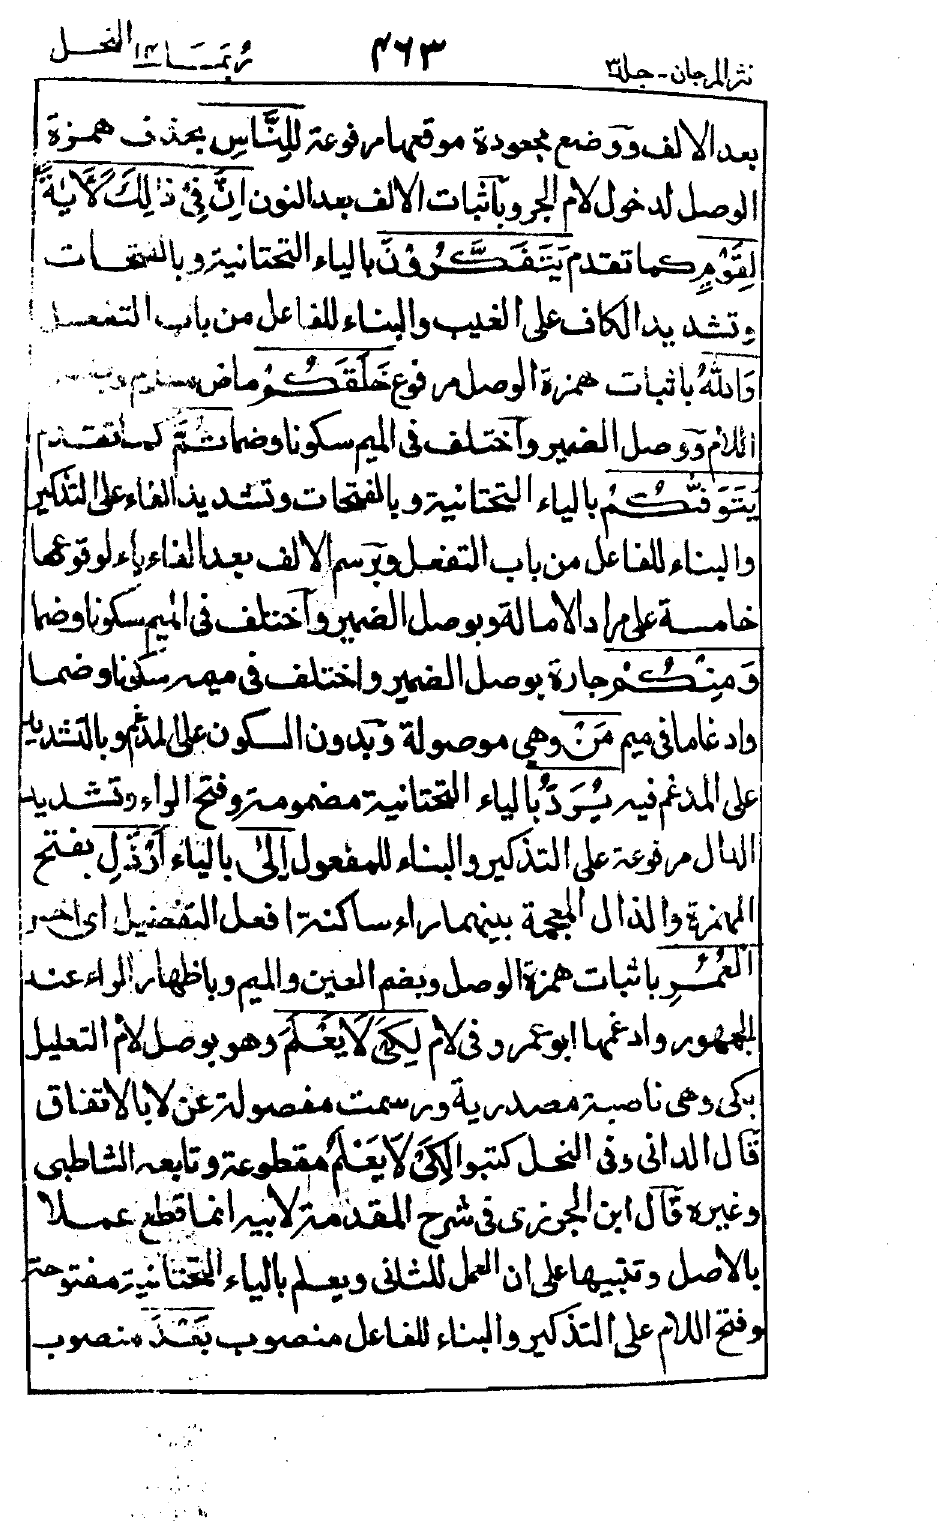 نثر المرجان - جلد ٣ ٤٦٣ ربما ١٤ النحل
بعد الالف ووضع مجعودة موقعها مرفوعة لِلنَّاسِ بحذف همزة
الوصل لدخول لام الجر وبآثبات الالف بعد النون اِنَّ فِيْ ذٰلِكَ لَاٰيَةً
لِقَوْمٍ كما تقدم يَتَفَكَّرُوْنَ بالياء التحتانية وبالفتحات
وتشديد الكاف على الغيب والبناء للفاعل من باب التفعل
وَاللّٰهُ باثبات همزة الوصل مرفوع خَلَقَكُمْ ماض
اللام وَوصل الضمير وآختلف فى الميم سكونا وضما ثُمَّ كما تقدم
يَتَوَفّٰىكُمْ بالياء التحتانية وبالفتحات وتشديد الفاء على التذكير
والبناء للفاعل من باب التفعل وبرسم الالف بعد الفاء ياء لوقوعها
خامسة على مراد الامالة وبوصل الضمير وآختلف فى الميم سكونا وضما
وَمِنْكُمْ جارة بوصل الضمير واختلف فى ميمه سكونا وضما
وادغاما فى ميم مَنْ وهى موصولة وَبدون السكون على المدغم وبالتشديد
على المدغم فيه يُرَدُّ بالياء التحتانية مضمومة وفتح الراء وتشديد
الدال مرفوعة على التذكير والبناء للمفعول اِلٰى بالياء اَرْذَلِ بفتح
الهمزة والذال المعجمة بينهما راء ساكنة افعل التفضيل اى اخس
الْعُمُرِ باثبات همزة الوصل وبضم العين والميم وباظهار الراء عند
الجمهور وادغمها ابو عمرو فى لام لِكَيْ لَا يَعْلَمَ وهو بوصل لام التعليل
بكى وهى ناصبة مصدرية ورسمت مفصولة عن لا بالاتفاق
قال الدانى وفى النحل كتبوا لِكَيْ لَا يَعْلَمَ مقطوعة وتابعه الشاطبى
وغيره قال ابن الجوزى فى شرح المقدمة لابيه انما قطع عملا
بالاصل وتنبيها على ان العمل للثانى ويعلم بالياء التحتانية مفتوحة
وفتح اللام على التذكير والبناء للفاعل منصوب بَعْدَ منصوب